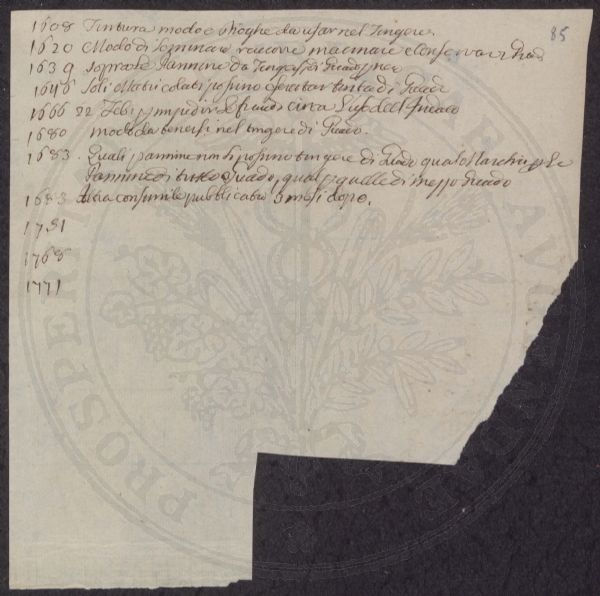 85
1608 Tintura modo e Droghe da usar nel Tingere.
1620 Modo di seminare raccorre macinare e conservare Guado
1639 Sopra le Pannine da Tingersi di Guado
1646 Soli Matricolati possino far tinta di Guado
1666 22 Febb. p. impedir le fraudi circa
1680 modo da tenersi nel tingere di Guado.
1683. Quali pannine non si possino tingere di Guado qual Marchio p. le
Pannine di tutto Guado, qual p. quelle di mezzo Guado
1683 altra consimile pubblicata 3 mesi dopo.
1751
1768
1771
PROSPERI